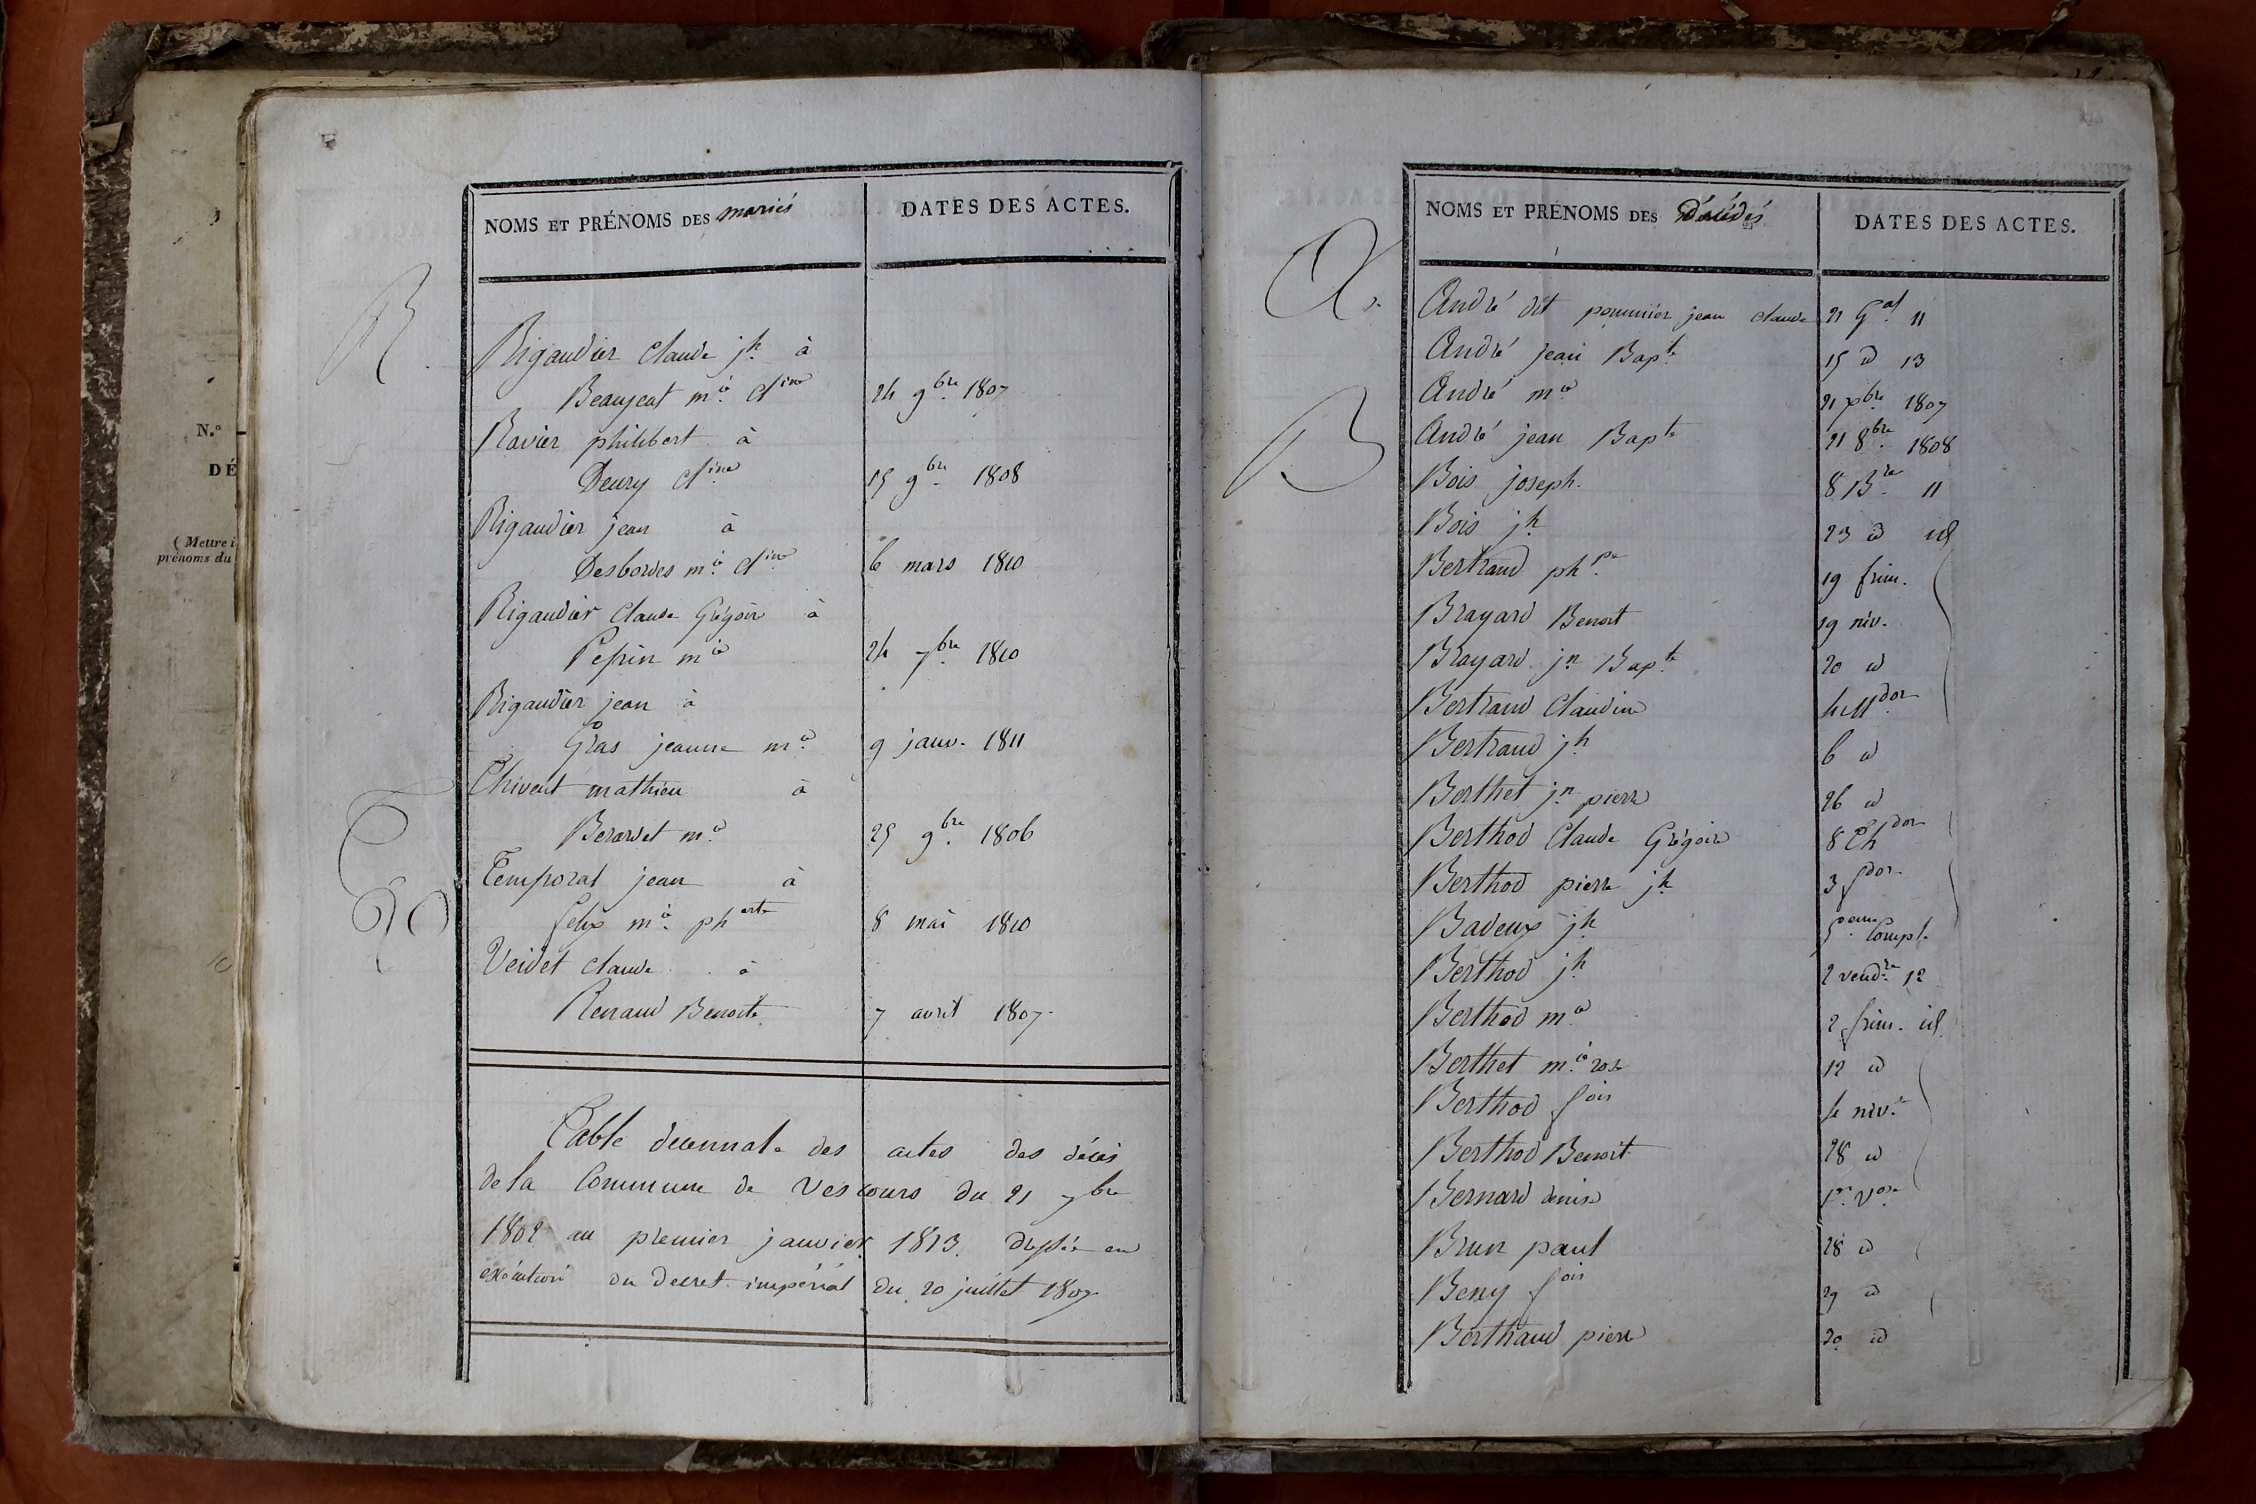 N.o
DÉ
(Mettre i
prénoms du
NOMS ET PRÉNOMS DES mariés
DATES DES ACTES.
R.
Rigaudier Claude jh à
Beaujeat mie Cline 24 9bre 1807
Ravier philibert à
Deury Cline 15 9bre 1808
Rigaudier jean à
Desbordes mie Cline 6 mars 1810
Rigaudier Claude Grégoire à
Pepin mie 24 7bre 1810
Rigaudier jean à
Gras jeanne mie 9 janv. 1811
T
Thivent mathieu à
Berardet mie 25 9bre 1806
Temporal jean à
felix mie ph 8 mai 1810
V
Veidet claude à
Renaud Benoite 7 avril 1807
Table décennale des actes des décès
de la Commune de Vescours du 21 7bre
1802 au premier janvier 1813. dressée en
exécution du decret impérial du 20 juillet 1807
NOMS ET PRÉNOMS DES Décédés
DATES DES ACTES.
A.
André dit pommier jean claude 21 Gal 11
André jean Bapte 15 d 13
André mie 21 xbre 1807
André jean Bapte 21 8bre 1808
B
Bois joseph. 8 Bre 11
Bois jh 23 d id
Bertrand phpe 19 frim.
Brayard Benoit 19 niv.
Brayard jn Bapte 20 d
Bertrand Claudine 4 Mdor
Bertrand jh 6 d
Berthet jn pierre 26 d
Berthod Claude Grégoire 8 Thdor
Berthod pierre jh 3 fdor
Badeux jh 5eme Compl.
Berthod jh 2 vendre 12
Berthod mie 2 frim. id
Berthet mie rose 12 d
Berthod fois 4 niv.e
Berthod Benoit 28 d
Bernard denise 1er Vose
Brun paul 28 d
Beny fois 29 d
Berthaud pierre 30 d